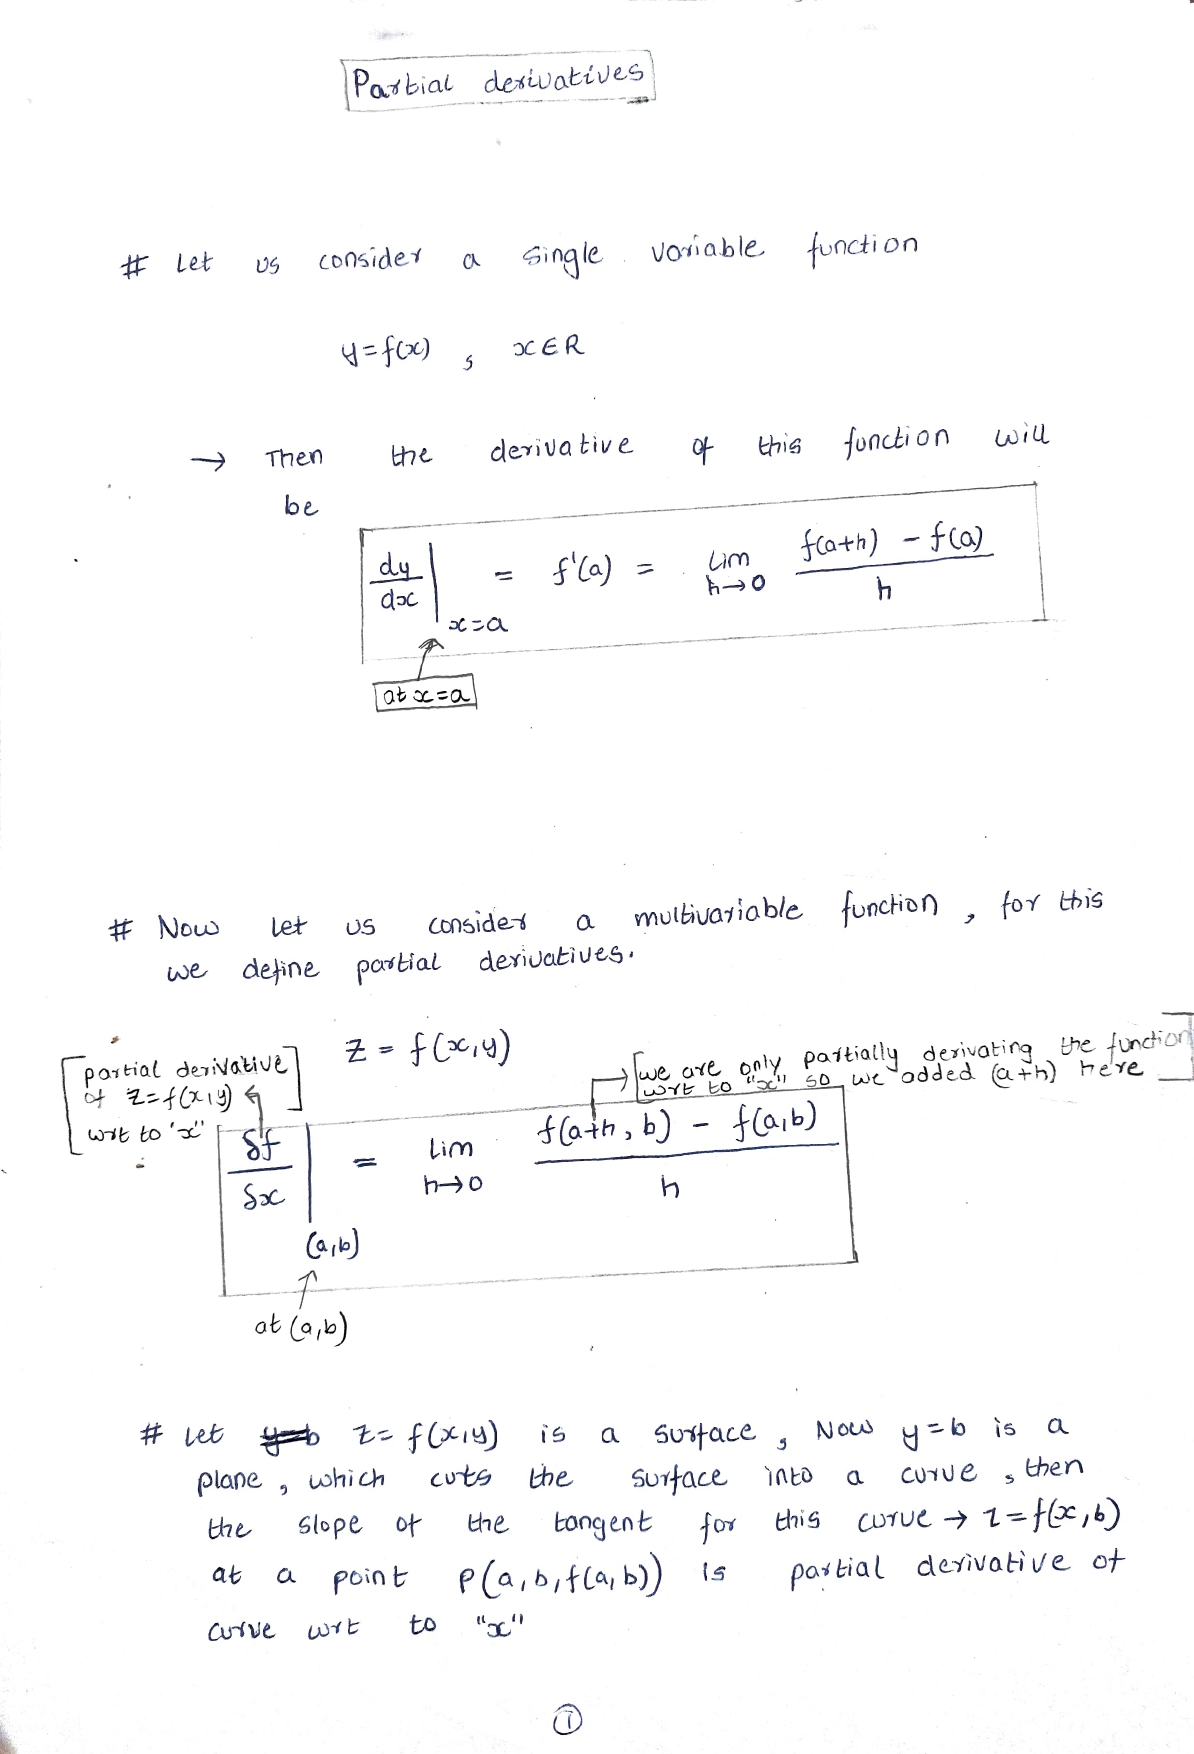 Partial derivatives
# Let us consider a single variable function
y = f(x) , x ∈ R
→ Then the derivative of this function will
be
dy/dx |x=a = f'(a) = Lim h→0 f(a+h) - f(a) / h
at x=a
# Now Let us consider a multivariable function , for this
we define partial derivatives.
z = f(x,y)
[partial derivative
of z=f(x,y)
wrt to 'x"]
[we are only partially derivating the function
wrt to "x" so we added (a+h) here]
δf/δx |(a,b) = Lim h→0 f(a+h, b) - f(a,b) / h
at (a,b)
# Let y=b z= f(x,y) is a surface , Now y=b is a
plane , which cuts the surface into a curve , then
the slope of the tangent for this curve → z=f(x,b)
at a point P(a,b,f(a,b)) is partial derivative of
curve wrt to "x"
1